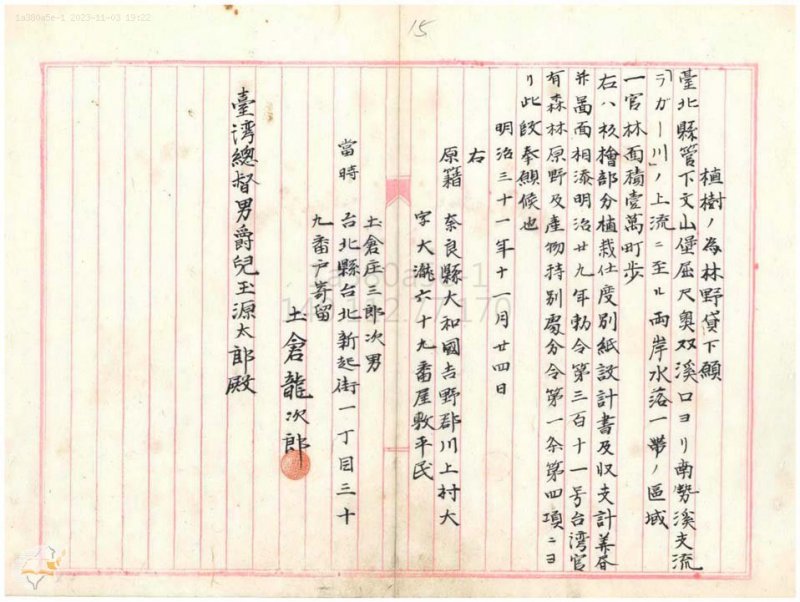 1a380a5e-1 2023-11-03 19:22
15
植樹ノ為林野貸下願
臺北縣管下文山堡屈尺奥双溪口ヨリ南勢溪支流
「ラガー川」ノ上流ニ至ル両岸水落一帶ノ區域
一官林面積壹萬町歩
右ハ杉檜部分植栽仕度別紙設計書及収支計算書
并圖面相添明治廿九年勅令第三百十一号台湾官
有森林原野及産物特別處分令第一条第四項ニヨ
リ此段奉願候也
明治三十一年十一月廿四日
右
原籍 奈良縣大和國吉野郡川上村大
字大滝六十九番屋敷平民
土倉庄三郎次男
當時 台北縣台北新起街一丁目三十
九番戸寄留
土倉龍次郎
臺湾總督男爵兒玉源太郎殿